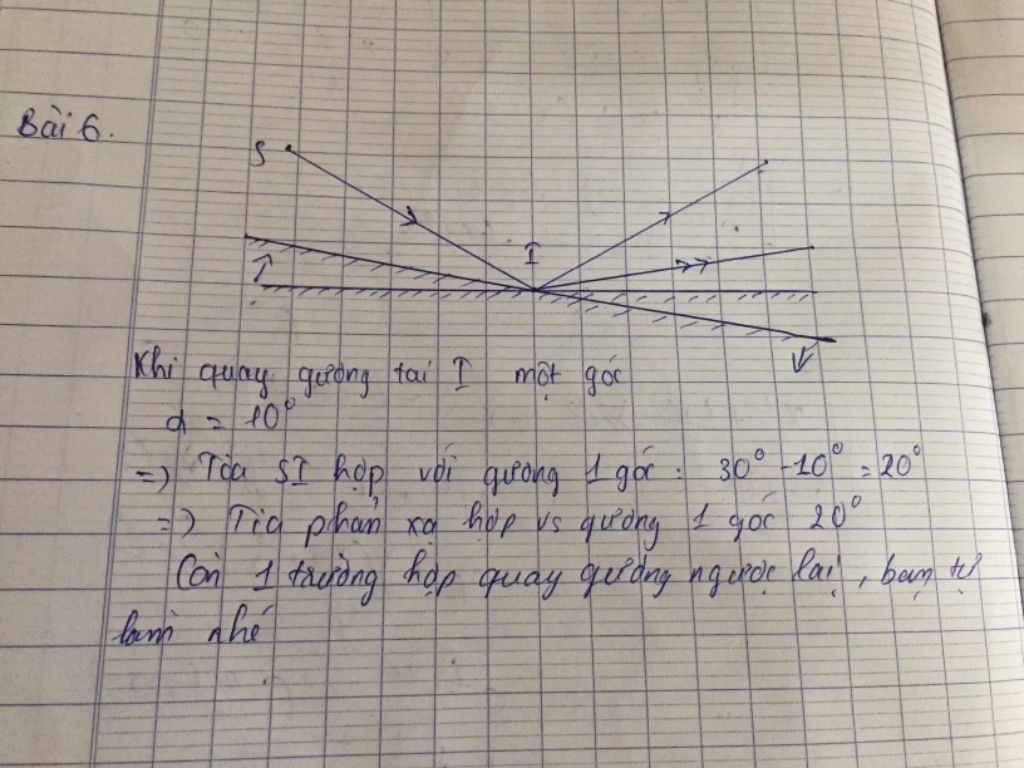 Bài 6.
S
I
Khi quay gương tại I một góc
α = 10°
=) Tia SI hợp với gương 1 góc : 30° - 10° = 20°
=) Tia phản xạ hợp vs gương 1 góc 20°
Còn 1 trường hợp quay gương ngược lại, bạn tự
làm nhé